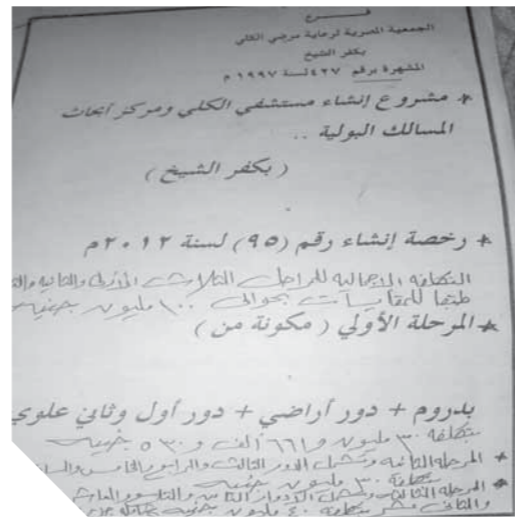 فرع
الجمعية المصرية لرعاية مرضي الكلي
بكفر الشيخ
المشهرة برقم ٤٢٧ لسنة ١٩٩٧ م
* مشروع إنشاء مستشفي الكلي ومركز أبحاث
المسالك البولية ..
( بكفر الشيخ )
* رخصة إنشاء رقم (٩٥) لسنة ٢٠١٢م
التكلفه الاجماليه للمراحل الثلاث الأولى والثانيه
طبقا للمقايسات بحوالى ١٠٠ مليون جنيه
* المرحلة الأولي ( مكونة من )
بدروم + دور أراضي + دور أول وثاني علوي
بتكلفه ٣٠ مليون و ٦٦١ ألف و ٥٣٠ جنيه
* المرحله الثانيه وتشمل الدور الثالث والرابع والخامس
بتكلفه ٣٠ مليون جنيه
* المرحله الثالثه وتشمل الادوار الثامن والتاسع والعاشر
والثانى عشر بتكلفه ٤٠ مليون جنيه